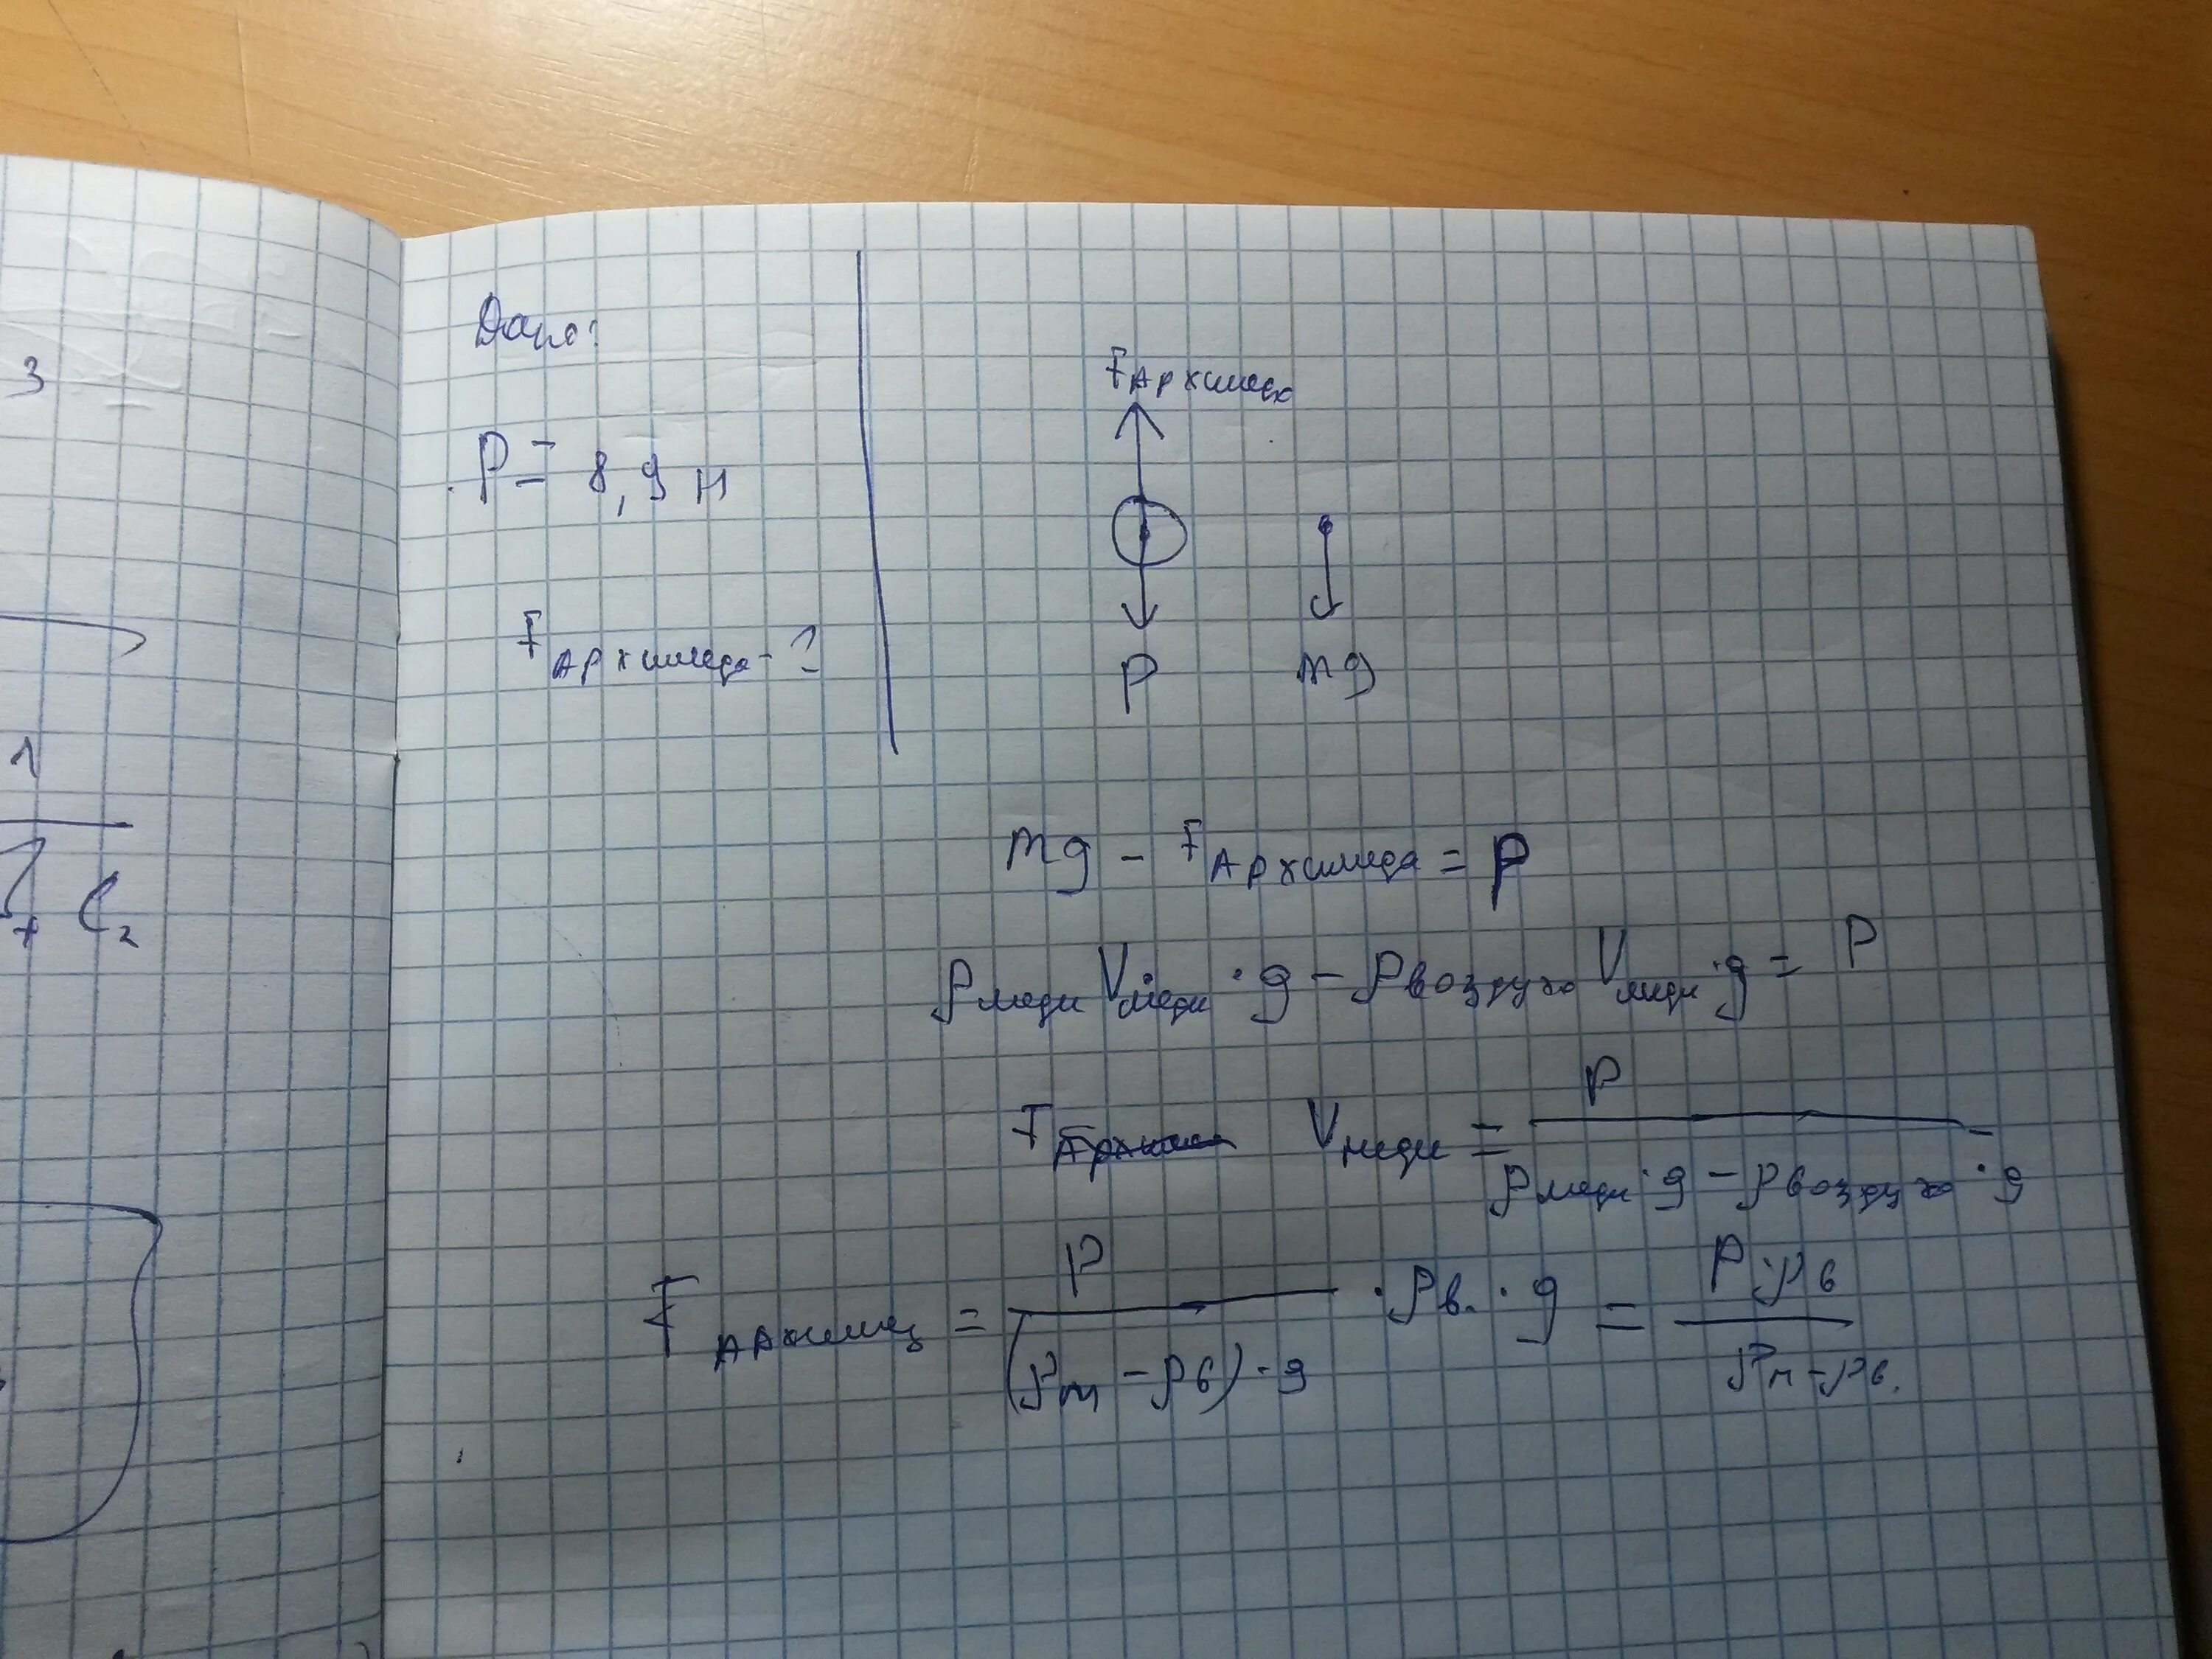 Дано:
P = 8,9 Н
F Архимеда - ?
F Архимеда
P
mg
mg - F Архимеда = P
ρ меди V меди · g - ρ воздуха V меди · g = P
V меди = P / (ρ меди · g - ρ воздуха · g)
F Архимед = P / ((ρм - ρв) · g) · ρв. · g = P · ρв / (ρм - ρв.)
3
1
C₂